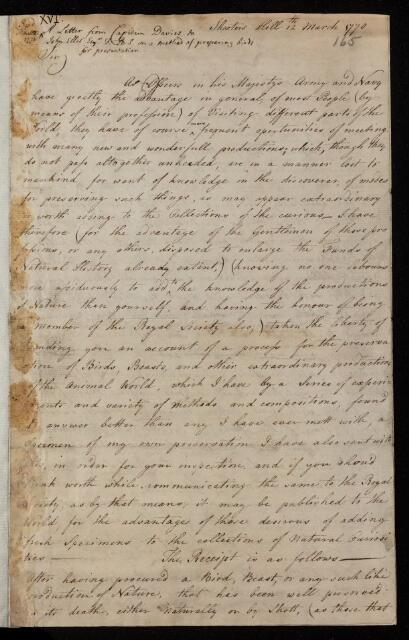 XVI
A Letter from Captain Davies to
Shooters Hill 12th March 1770
John Ellis Esqr F.R.S. on a method of preparing birds
for preservation
165
Sir
As Officers in his Majestys Army and Navy
have greatly the advantage in general, of most People (by
means of their profession) of Visiting different parts of the
World, they have of course more frequent opertunities of meeting
with many new and wonderfull productions, which, though they
do not pass alltogether unheeded, are in a manner lost to
mankind for want of knowledge in the discoverer, of modes
for preserving such things, as may appear extraordinary
worth adding to the Collections of the curious I have
therefore (for the advantage of the Gentlemen of those pro
fessions, or any others, disposed to enlarge the Funds of
Natural History already extent) (knowing no one labours
more assiduously to add to the knowledge of the productions
of Nature than yourself, and having the honour of being
a member of the Royal Society also,) taken the liberty of
sending you an account of a process for the preserva
tion of Birds, Beasts, and other extraordinary productions
of the animal World, which I have by a Series of experi
ments and variety of methods and compositions, found
to answer better than any I have ever mett with, a
specimen of my own preservation I have also sent with
this, in order for your inspection, and if you should
think worth while communicating the same to the Royal
Society, as by that means, it may be published to the
World, for the advantage of those desirous of adding
fresh Specimens to the collections of Natural curiosi
ties
The Receipt is as follows
After having procured a Bird, Beast, or any such like
production of Nature, that has been well preserved
in its death, either Naturally or by Shott, (as those that